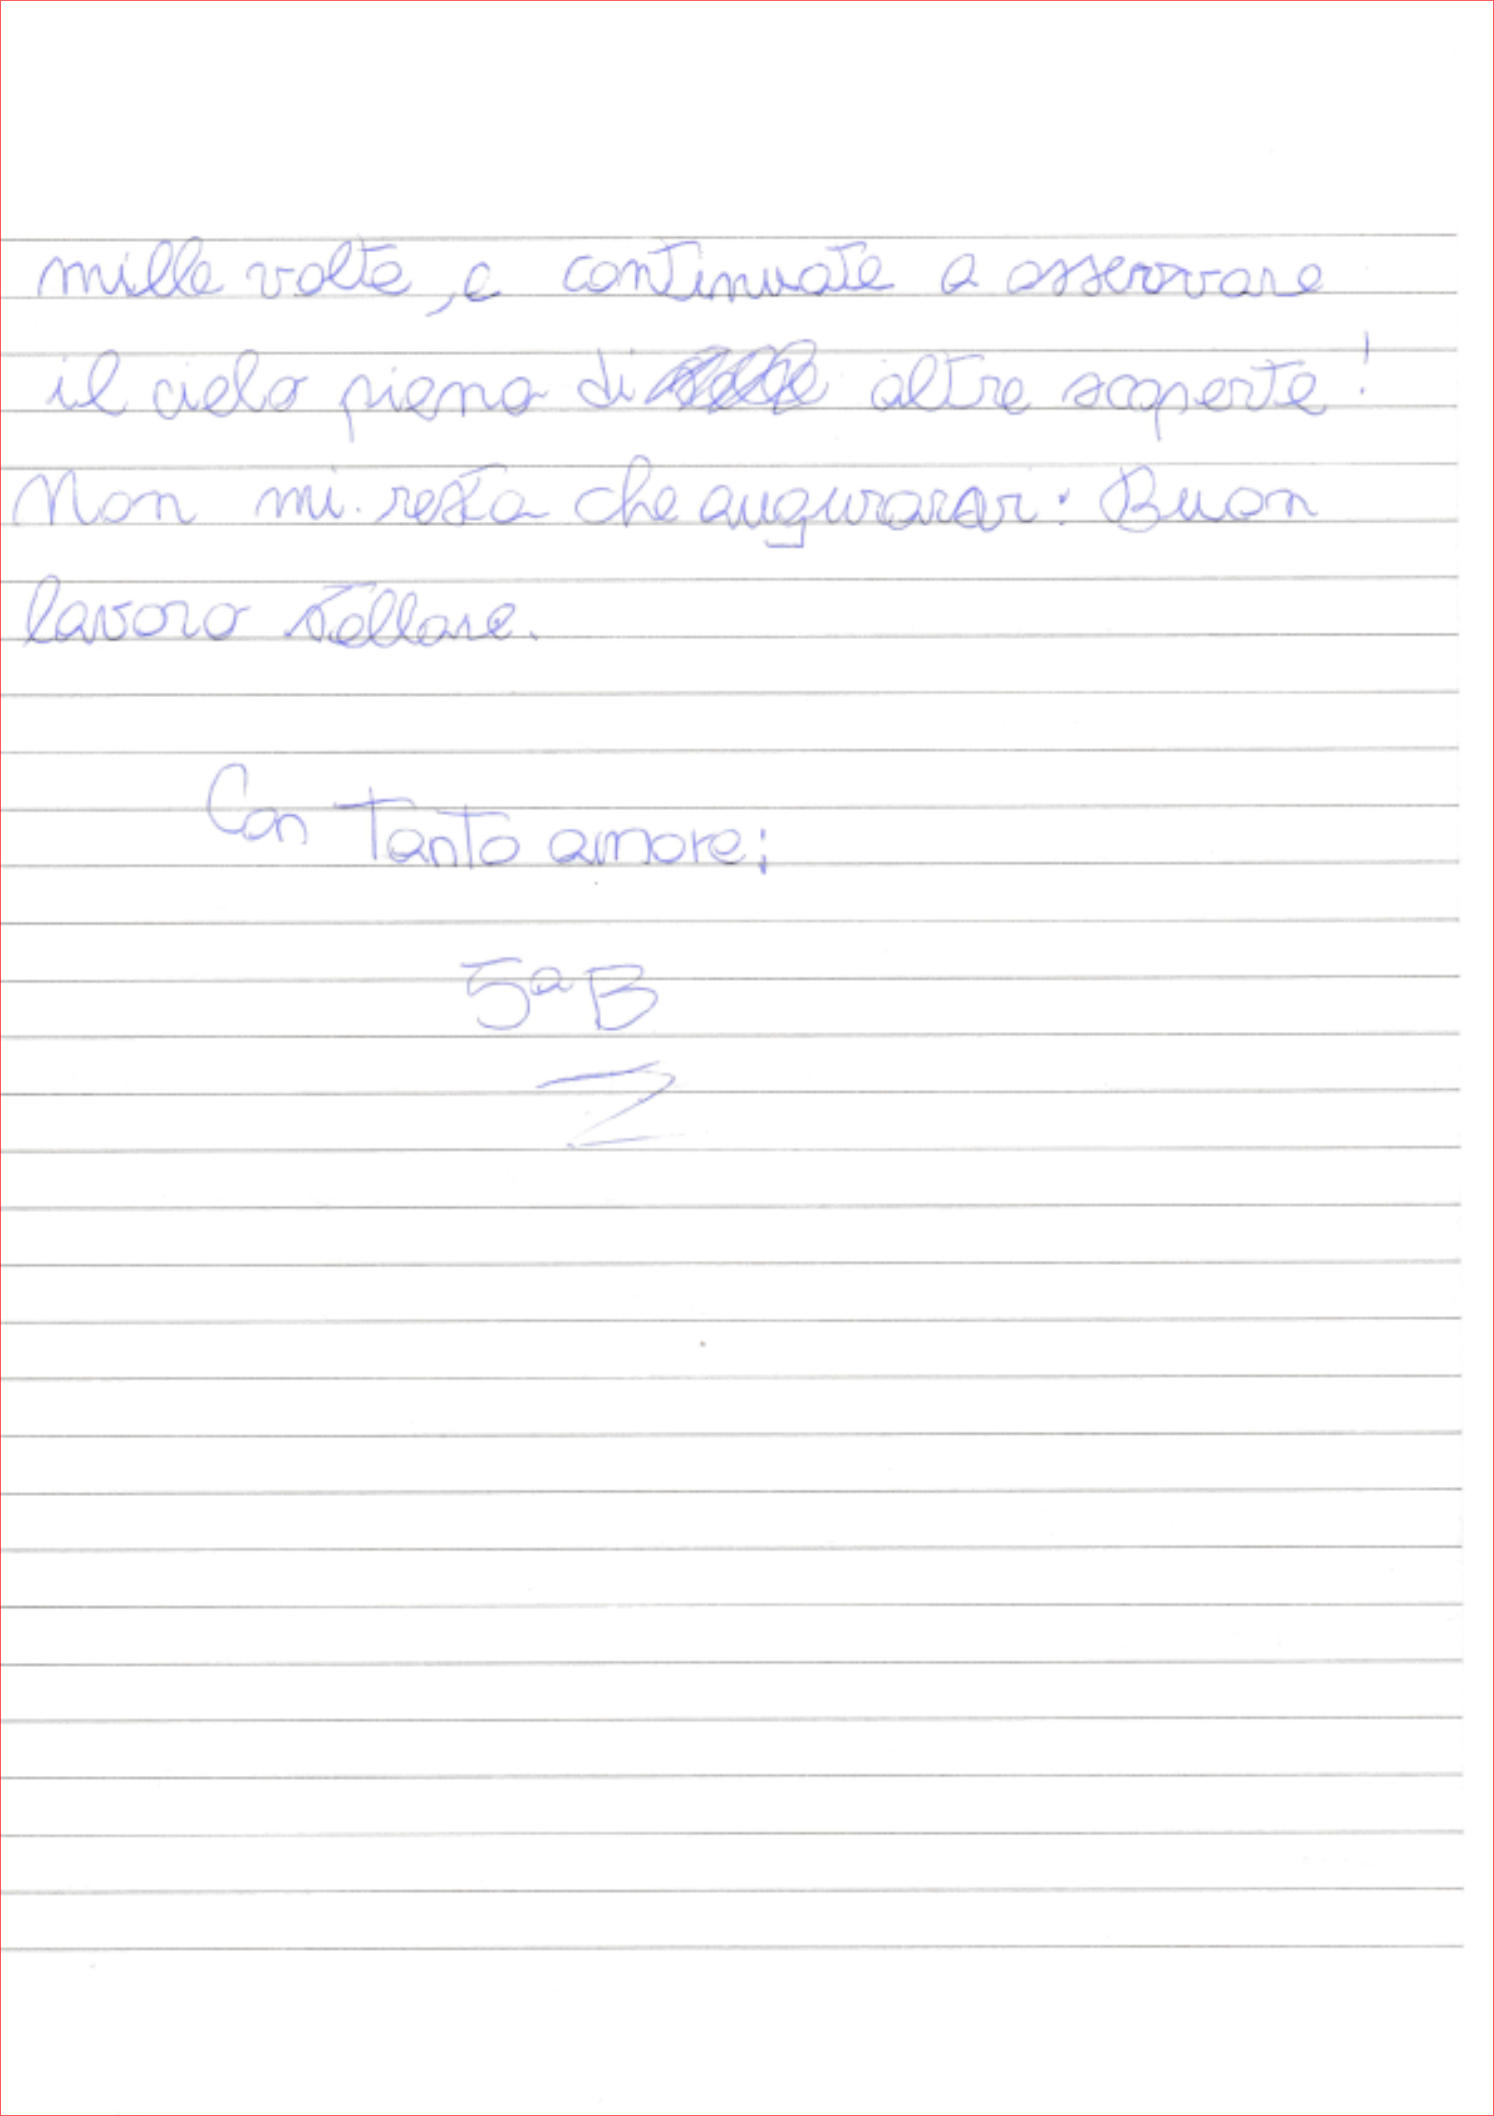 mille volte, e continuate a osservare
il cielo pieno di altre scoperte!
Non mi resta che augurarvi: Buon
lavoro stellare.
Con tanto amore;
5ª B